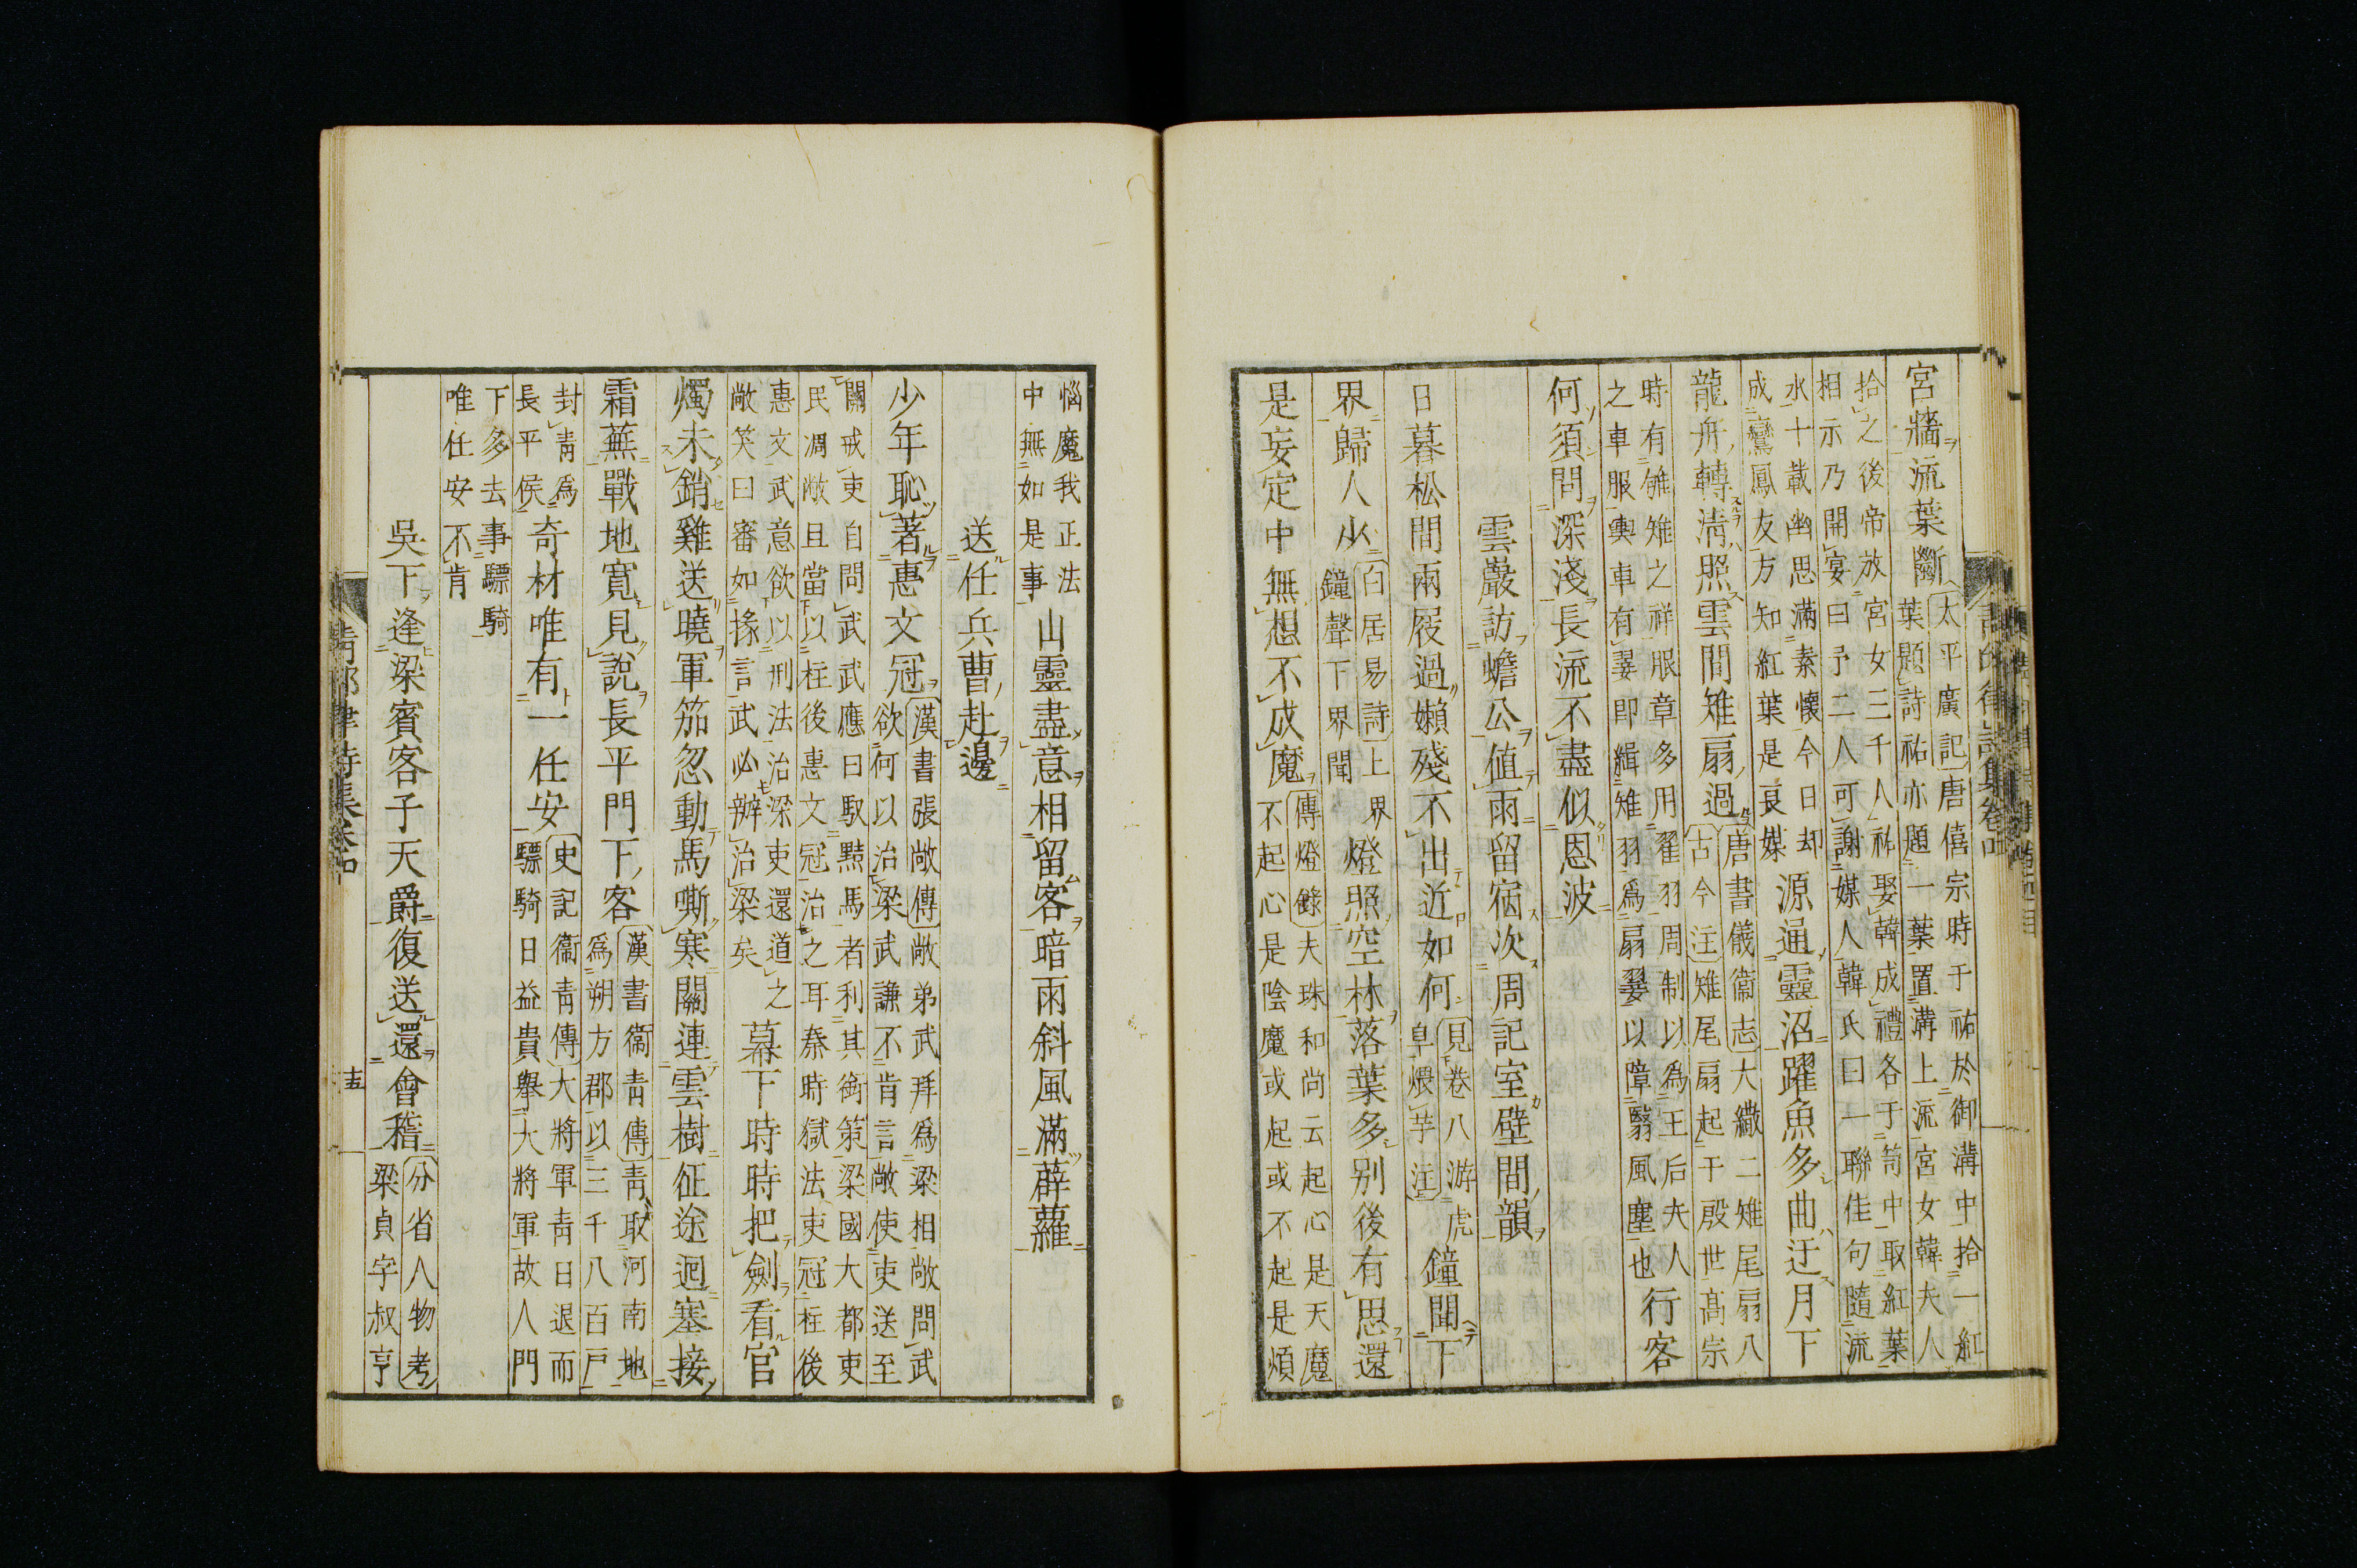 宮牆流葉斷
太平廣記唐僖宗時于祐於御溝中拾一紅
葉題詩祐亦題一葉置溝上流宮女韓夫人
拾之後帝放宮女三千人祐娶韓成禮各于笥中取紅葉
相示乃開宴曰予二人可謝媒人韓氏曰一聯佳句隨流
水十載幽思滿素懷今日却
成鸞鳳友方知紅葉是良媒
源通靈沼躍魚多曲迂月下
龍舟轉清照雲間雉扇過
唐書儀衞志大繖二雉尾扇八
古今注雉尾扇起于殷世高宗
時有雊雉之祥服章多用翟羽周制以爲王后夫人
之車服輿車有翣即緝雉羽爲扇翣以障翳風塵也
行客
何須問深淺長流不盡似恩波
雲巖訪蟾公値雨留宿次周記室壁間韻
日暮松間兩屐過嬾殘不出近如何
見卷八游虎
阜煨芋注
鐘聞下
界歸人少
白居易詩上界
鐘聲下界聞
燈照空林落葉多別後有思還
是妄定中無想不成魔
傳燈錄夫珠和尚云起心是天魔
不起心是陰魔或起或不起是煩
惱魔我正法
中無如是事
山靈盡意相留客暗雨斜風滿薜蘿
送任兵曹赴邊
少年恥著惠文冠
漢書張敞傳敞弟武拜爲梁相敞問武
欲何以治梁武謙不肯言敞使吏送至
關戒吏自問武武應曰馭黠馬者利其銜策梁國大都吏
民凋敝且當以柱後惠文冠治之耳秦時獄法吏冠柱後
惠文武意欲以刑法治梁吏還道之
敞笑曰審如掾言武必辦治梁矣
幕下時時把劍看官
燭未銷雞送曉軍笳忽動馬嘶寒關連雲樹征途迥塞接
霜蕪戰地寬見說長平門下客
漢書衞青傳青取河南地
爲朔方郡以三千八百戶
封青爲
長平侯
奇材唯有一任安
史記衞青傳大將軍青日退而
驃騎日益貴舉大將軍故人門
下多去事驃騎
唯任安不肯
吳下逢梁賓客子天爵復送還會稽
分省人物考
梁貞字叔亨
青邱律詩集卷中
十五